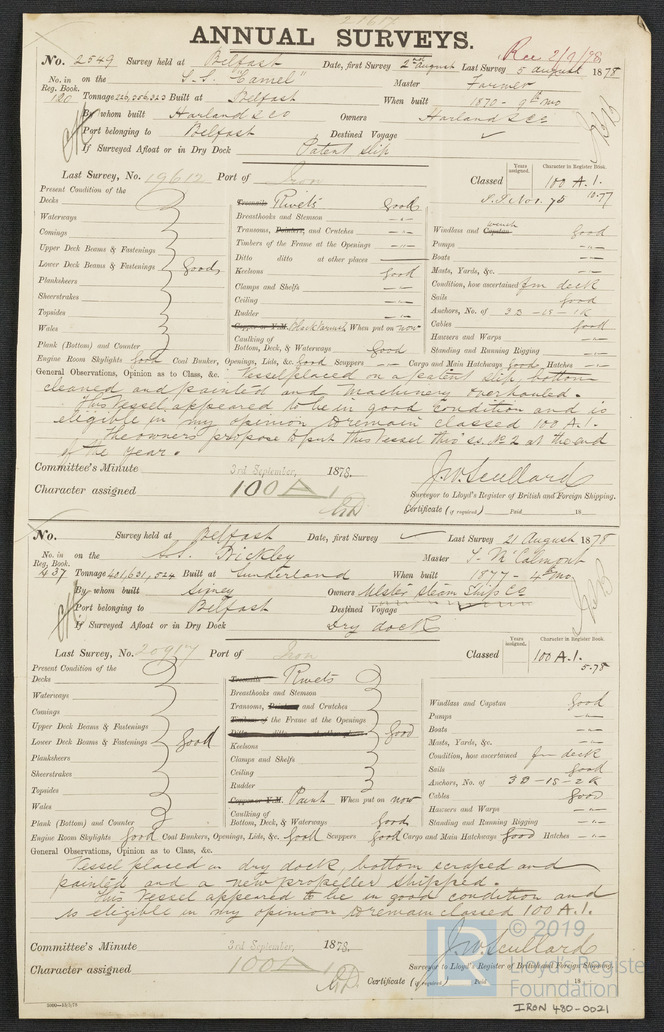 ANNUAL SURVEYS.
Rec 2/9/78
No. 2549 Survey held at Belfast Date, first Survey 2nd August Last Survey 5 August 1878
No. in Reg. Book. on the S.S. "Camel" Master Farmer
Tonnage Built at Belfast When built 1870 - 9th mo
By whom built Harland & Co Owners Harland & Co
Port belonging to Belfast Destined Voyage
If Surveyed Afloat or in Dry Dock Patent slip
Last Survey, No. 19612 Port of Iron Classed Years assigned. Character in Register Book. 100 A.1.
10.77
Present Condition of the
Decks
Waterways
Comings
Upper Deck Beams & Fastenings
Lower Deck Beams & Fastenings Good
Planksheers
Sheerstrakes
Topsides
Wales
Plank (Bottom) and Counter
Treenails Rivets Good
Breasthooks and Stemson -"-
Transoms, Pointers, and Crutches -"-
Timbers of the Frame at the Openings -"-
Ditto ditto at other places
Keelsons Good
Clamps and Shelfs -"-
Ceiling -"-
Rudder -"-
Copper or Y.M. Black Varnish When put on now
Caulking of Bottom, Deck, & Waterways Good
Windlass and Capstan winch Good
Pumps -"-
Boats -"-
Masts, Yards, &c. -"-
Condition, how ascertained fm deck
Sails Good
Anchors, No. of 3B - 1S - 1K
Cables Good
Hawsers and Warps -"-
Standing and Running Rigging -"-
Engine Room Skylights Good Coal Bunker, Openings, Lids, &c. Good Scuppers -"- Cargo and Main Hatchways Good Hatches -"-
General Observations, Opinion as to Class, &c. Vessel placed on a patent slip, bottom
cleaned and painted and Machinery Overhauled.
This Vessel appeared to be in good condition and is
eligible in my opinion to remain classed 100 A.1.
The owners propose to put this Vessel thro' s.s. No 2 at the end
of the year.
Committee's Minute 3rd September, 1878.
Character assigned 100 A 1
J. W. Scullard
Surveyor to Lloyd's Register of British and Foreign Shipping.
Certificate (if required) Paid 18
No. Survey held at Belfast Date, first Survey Last Survey 21 August 1878
No. in Reg. Book. on the S.S. Bickley Master T. McCalmont
437 Tonnage 401,631,524 Built at Sunderland When built 1877 - 4th mo.
By whom built Owners Ulster Steam Ship Co
Port belonging to Belfast Destined Voyage
If Surveyed Afloat or in Dry Dock Dry dock
Last Survey, No. 20917 Port of Iron Classed Years assigned. Character in Register Book. 100 A.1.
5.78
Present Condition of the
Decks
Waterways
Comings
Upper Deck Beams & Fastenings
Lower Deck Beams & Fastenings Good
Planksheers
Sheerstrakes
Topsides
Wales
Plank (Bottom) and Counter
Treenails Rivets
Breasthooks and Stemson
Transoms, Pointers and Crutches
Timbers of the Frame at the Openings
Good
Keelsons
Clamps and Shelfs
Ceiling
Rudder
Copper or Y.M. Paint When put on now
Caulking of Bottom, Deck, & Waterways Good
Windlass and Capstan Good
Pumps -"-
Boats -"-
Masts, Yards, &c. -"-
Condition, how ascertained fm deck
Sails Good
Anchors, No. of 3B - 1S - 2K
Cables Good
Hawsers and Warps -"-
Standing and Running Rigging -"-
Engine Room Skylights Good Coal Bunkers, Openings, Lids, &c. Good Scuppers Good Cargo and Main Hatchways Good Hatches -"-
General Observations, Opinion as to Class, &c.
Vessel placed in dry dock, bottom scraped and
painted and a new propeller shipped.
This Vessel appeared to be in good condition and
is eligible in my opinion to remain classed 100 A.1.
Committee's Minute 3rd September, 1878.
Character assigned 100 A 1
J. W. Scullard
Surveyor to Lloyd's Register of British and Foreign Shipping.
Certificate (if required) Paid 18
© 2019
Lloyd's Register
Foundation
IRON 480-0021